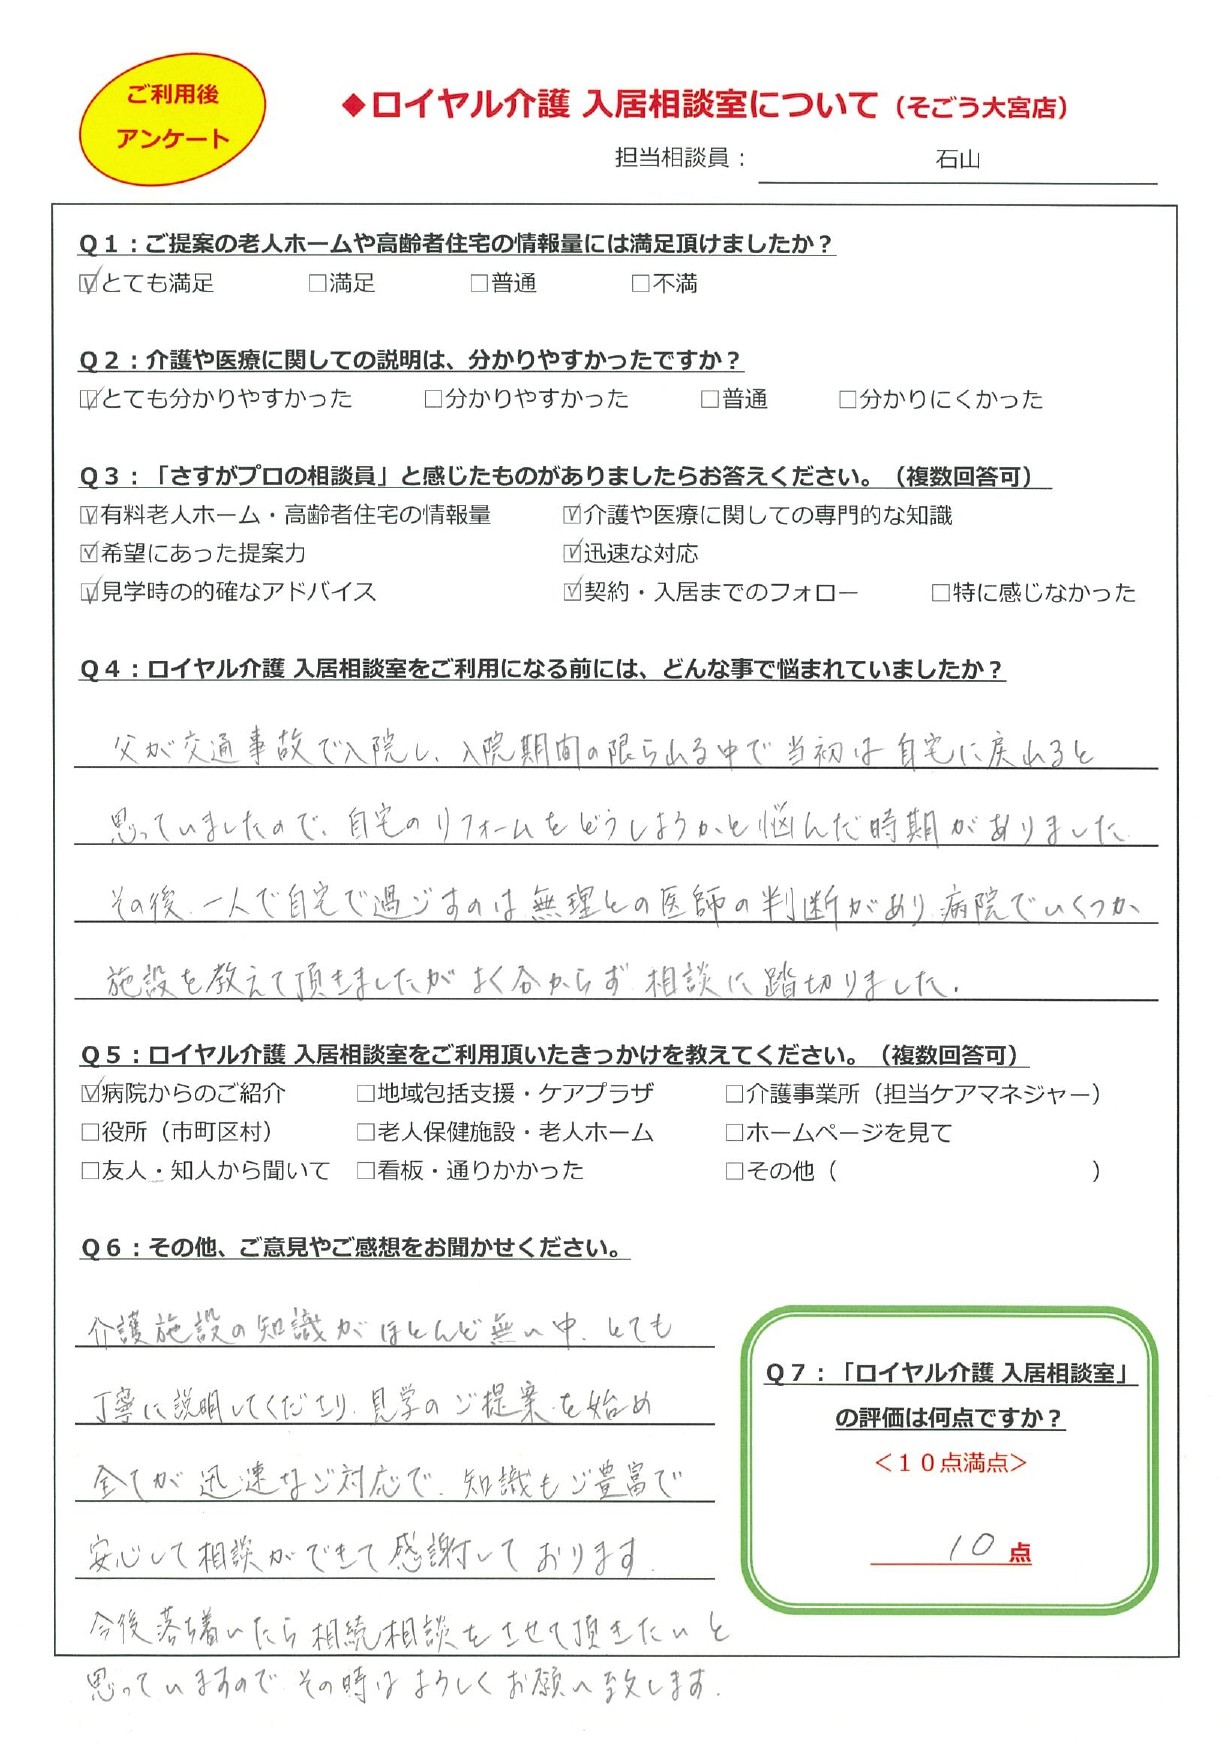 ご利用後
アンケート
◆ロイヤル介護 入居相談室について（そごう大宮店）
担当相談員： 石山
Q1：ご提案の老人ホームや高齢者住宅の情報量には満足頂けましたか？
☑とても満足 □満足 □普通 □不満
Q2：介護や医療に関しての説明は、分かりやすかったですか？
☑とても分かりやすかった □分かりやすかった □普通 □分かりにくかった
Q3：「さすがプロの相談員」と感じたものがありましたらお答えください。（複数回答可）
☑有料老人ホーム・高齢者住宅の情報量 ☑介護や医療に関しての専門的な知識
☑希望にあった提案力 ☑迅速な対応
☑見学時の的確なアドバイス ☑契約・入居までのフォロー □特に感じなかった
Q4：ロイヤル介護 入居相談室をご利用になる前には、どんな事で悩まれていましたか？
父が交通事故で入院し、入院期間の限られる中で当初は自宅に戻れると
思っていましたので、自宅のリフォームをどうしようかと悩んだ時期がありました
その後、一人で自宅で過ごすのは無理との医師の判断があり、病院でいくつか
施設を教えて頂きましたがよく分からず、相談に踏切りました。
Q5：ロイヤル介護 入居相談室をご利用頂いたきっかけを教えてください。（複数回答可）
☑病院からのご紹介 □地域包括支援・ケアプラザ □介護事業所（担当ケアマネジャー）
□役所（市町区村） □老人保健施設・老人ホーム □ホームページを見て
□友人・知人から聞いて □看板・通りかかった □その他（ ）
Q6：その他、ご意見やご感想をお聞かせください。
介護施設の知識がほとんど無い中、とても
丁寧に説明してくださり、見学のご提案を始め
全てが迅速なご対応で、知識もご豊富で
安心して相談ができて感謝しております。
今後落ち着いたら相続相談をさせて頂きたいと
思っていますので、その時はよろしくお願い致します。
Q7：「ロイヤル介護 入居相談室」
の評価は何点ですか？
＜１０点満点＞
10 点